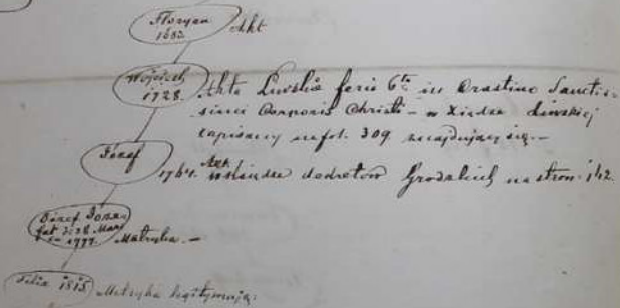 Floryan
1683. Akt
Wojciech
1728. Akta Liwskie feria 6ta in Crastino Sanctis-
simi Corporis Christi – w Xiędze Liwskiej
zapisany na fol. 309 znajdujący się. –
Józef
1764. Akt w Xiędze dekretów Grodzkich na stron. 142.
Józef
28 Mar
1777. Metryka. –
Felix 1815 Metryka legitymuje: